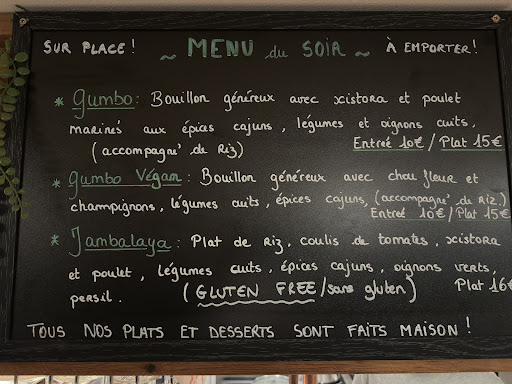 SUR PLACE ! ~ MENU du SOIR ~ À EMPORTER !
* Gumbo : Bouillon généreux avec xistora et poulet
marinés aux épices cajuns, légumes et oignons cuits,
(accompagné de Riz) Entrée 10€ / Plat 15€
* Gumbo Végan : Bouillon généreux avec chou fleur et
champignons, légumes cuits, épices cajuns, (accompagné de Riz.)
Entrée 10€ / Plat 15€
* Jambalaya : Plat de Riz, coulis de tomates, xistora
et poulet, légumes cuits, épices cajuns, oignons verts,
persil. (GLUTEN FREE/sans gluten) Plat 16€
TOUS NOS PLATS ET DESSERTS SONT FAITS MAISON !